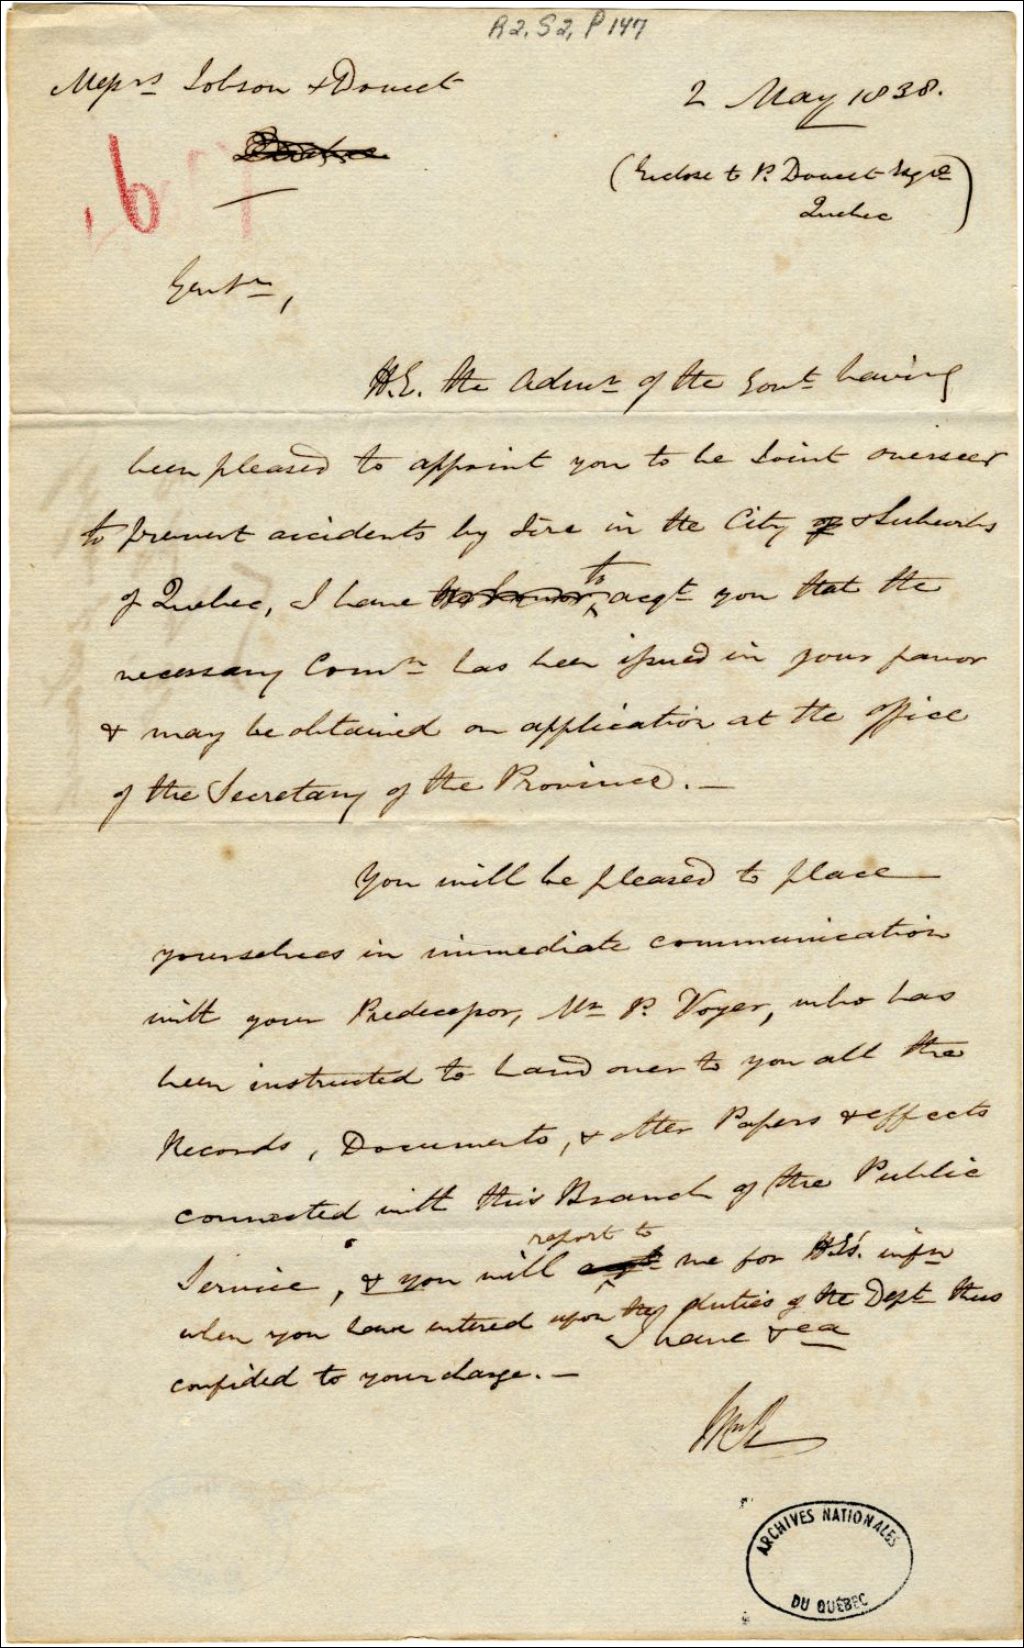 R2, S2, P147
Messrs Jobson & Doucet
2 May 1838.
(Enclose to P. Doucet Esqre
Quebec)
Gentn,
H.E. the Admr of the Govt having
been pleased to appoint you to be Joint overseer
to prevent accidents by Fire in the City of & Suburbs
of Quebec, I have the honor to acqt you that the
necessary Comn has been issued in your favor
& may be obtained on application at the office
of the Secretary of the Province. —
You will be pleased to place
yourselves in immediate communication
with your Predecessor, Mr P. Voyer, who has
been instructed to hand over to you all the
Records, Documents, & other Papers & effects
connected with this Branch of the Public
Service, & you will report to me for H.E's. infn
when you have entered upon the duties of the Dept thus
confided to your charge. —
I have &ca
ARCHIVES NATIONALES
DU QUÉBEC